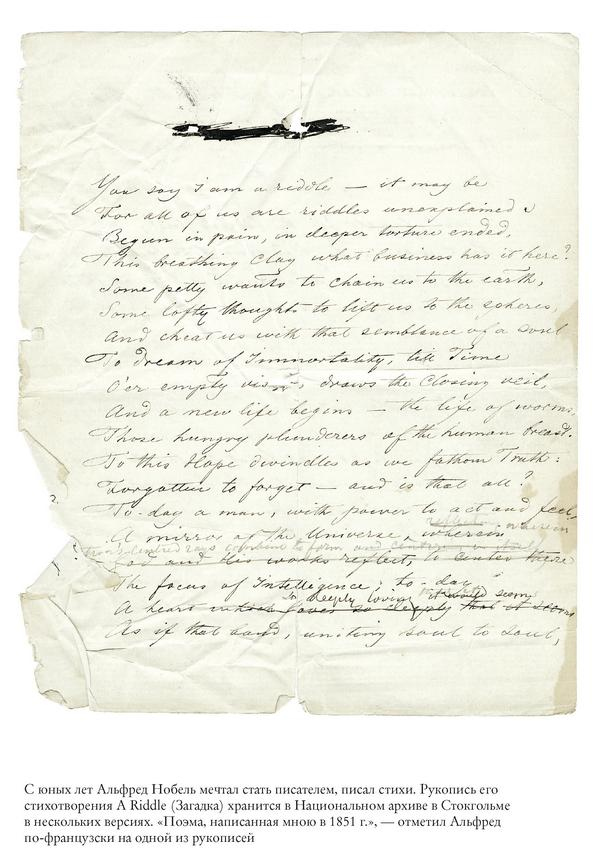 You say I am a riddle — it may be
For all of us are riddles unexplained
Begun in pain, in deeper torture ended,
This breathing Clay what business has it here?
Some petty wants to chain us to the earth,
Some lofty thoughts to lift us to the spheres,
And cheat us with that semblance of a soul
To dream of Immortality, till Time
O'er empty visions draws the Closing veil,
And a new life begins — the life of worms,
Those hungry plunderers of the human breast.
To this Hope dwindles as we fathom Truth:
Forgotten to forget — and is that all?
To-day a man, with power to act and feel,
reflected wherein
A mirror of the Universe, wherein
centred rays combine to form
God and His works reflect, to center there
The focus of Intelligence; to-day
so deeply loving seems
A heart which loves so deeply that it seems
As if that bond, uniting soul to soul,
С юных лет Альфред Нобель мечтал стать писателем, писал стихи. Рукопись его
стихотворения A Riddle (Загадка) хранится в Национальном архиве в Стокгольме
в нескольких версиях. «Поэма, написанная мною в 1851 г.», — отметил Альфред
по-французски на одной из рукописей